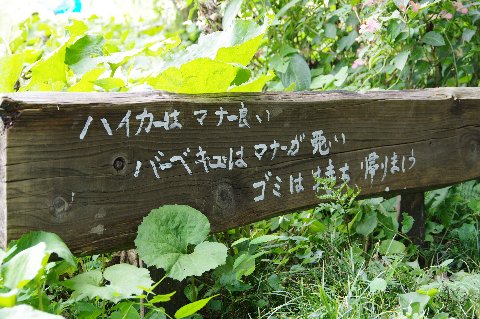 ハイカーは マナー良い
バーベキューは マナーが 悪い
ゴミは 持ち 帰りましょう